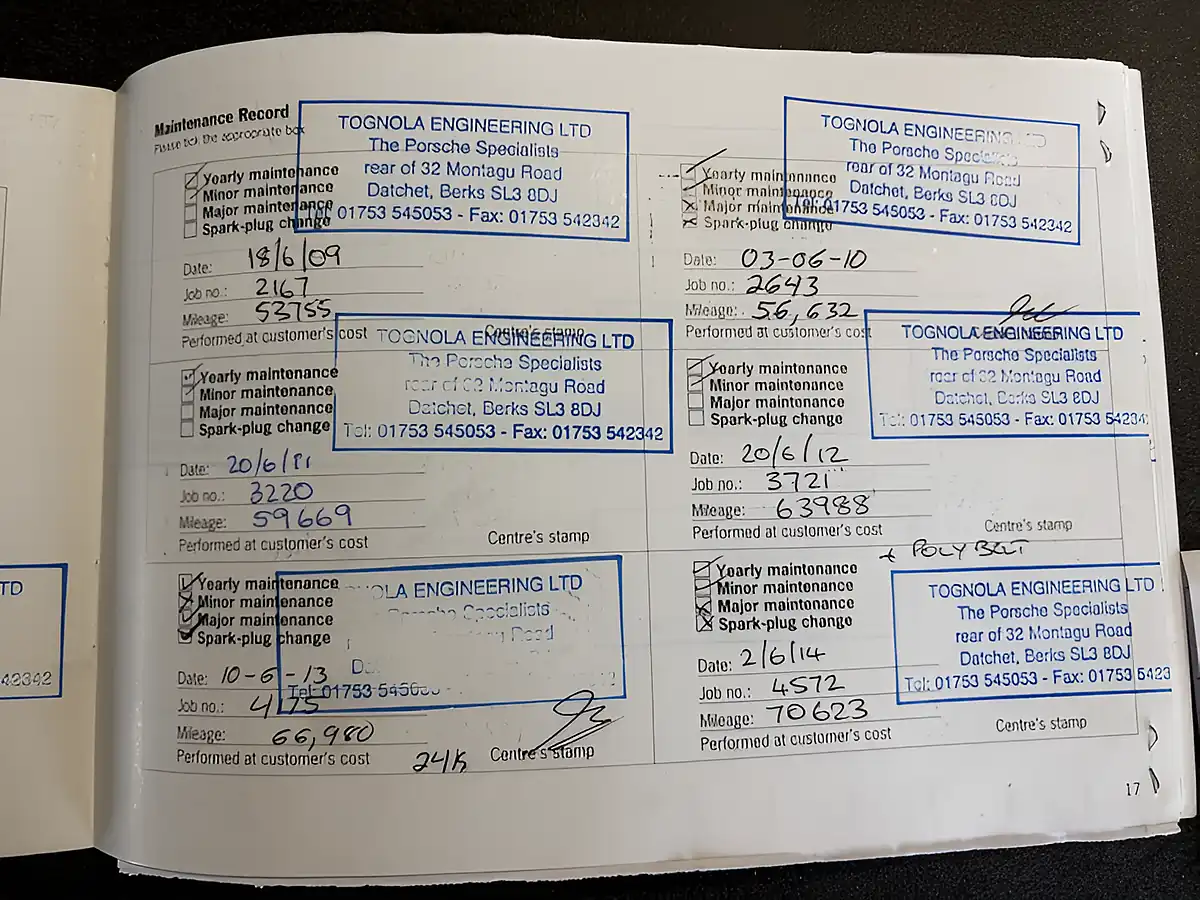 Maintenance Record
Please tick the appropriate box
TOGNOLA ENGINEERING LTD
The Porsche Specialists
rear of 32 Montagu Road
Datchet, Berks SL3 8DJ
Tel: 01753 545053 - Fax: 01753 542342
Yearly maintenance
Minor maintenance
Major maintenance
Spark-plug change
Date: 18/6/09
Job no.: 2167
Mileage: 53755
Performed at customer's cost
Centre's stamp
TOGNOLA ENGINEERING LTD
The Porsche Specialists
rear of 32 Montagu Road
Datchet, Berks SL3 8DJ
Tel: 01753 545053 - Fax: 01753 542342
Yearly maintenance
Minor maintenance
Major maintenance
Spark-plug change
Date: 03-06-10
Job no.: 2643
Mileage: 56,632
Performed at customer's cost
TOGNOLA ENGINEERING LTD
The Porsche Specialists
rear of 32 Montagu Road
Datchet, Berks SL3 8DJ
Tel: 01753 545053 - Fax: 01753 542342
Yearly maintenance
Minor maintenance
Major maintenance
Spark-plug change
Date: 20/6/11
Job no.: 3220
Mileage: 59669
Performed at customer's cost
Centre's stamp
TOGNOLA ENGINEERING LTD
The Porsche Specialists
rear of 32 Montagu Road
Datchet, Berks SL3 8DJ
Tel: 01753 545053 - Fax: 01753 54234
Yearly maintenance
Minor maintenance
Major maintenance
Spark-plug change
Date: 20/6/12
Job no.: 3721
Mileage: 63988
Performed at customer's cost
Centre's stamp
OLA ENGINEERING LTD
Porsche Specialists
Road
Tel: 01753
Yearly maintenance
Minor maintenance
Major maintenance
Spark-plug change
Date: 10-6-13
Job no.: 4175
Mileage: 66,980
Performed at customer's cost
24/K
Centre's stamp
+ POLY BELT
TOGNOLA ENGINEERING LTD
The Porsche Specialists
rear of 32 Montagu Road
Datchet, Berks SL3 8DJ
Tel: 01753 545053 - Fax: 01753 5423
Yearly maintenance
Minor maintenance
Major maintenance
Spark-plug change
Date: 2/6/14
Job no.: 4572
Mileage: 70623
Performed at customer's cost
Centre's stamp
17
TD
42342